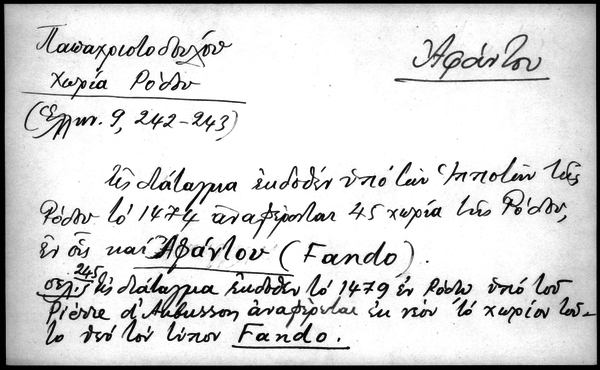 Παπαχριστοδούλου
Χωρία Ρόδου
Ἀφάντου
(Ἑλλην. 9, 242-243)
Εἰς διάταγμα ἐκδοθὲν ὑπὸ τῶν Ἱπποτῶν τῆς
Ρόδου τὸ 1474 ἀναφέρονται 45 χωρία τῆς Ρόδου,
ἐν οἷς καὶ Ἀφάντου (Fando).
σελ. 245 Εἰς διάταγμα ἐκδοθὲν τὸ 1479 ἐν Ρόδῳ ὑπὸ τοῦ
Pierre d'Aubusson ἀναφέρεται ἐκ νέου τὸ χωρίον τοῦ-
το ὑπὸ τὸν τύπον Fando.